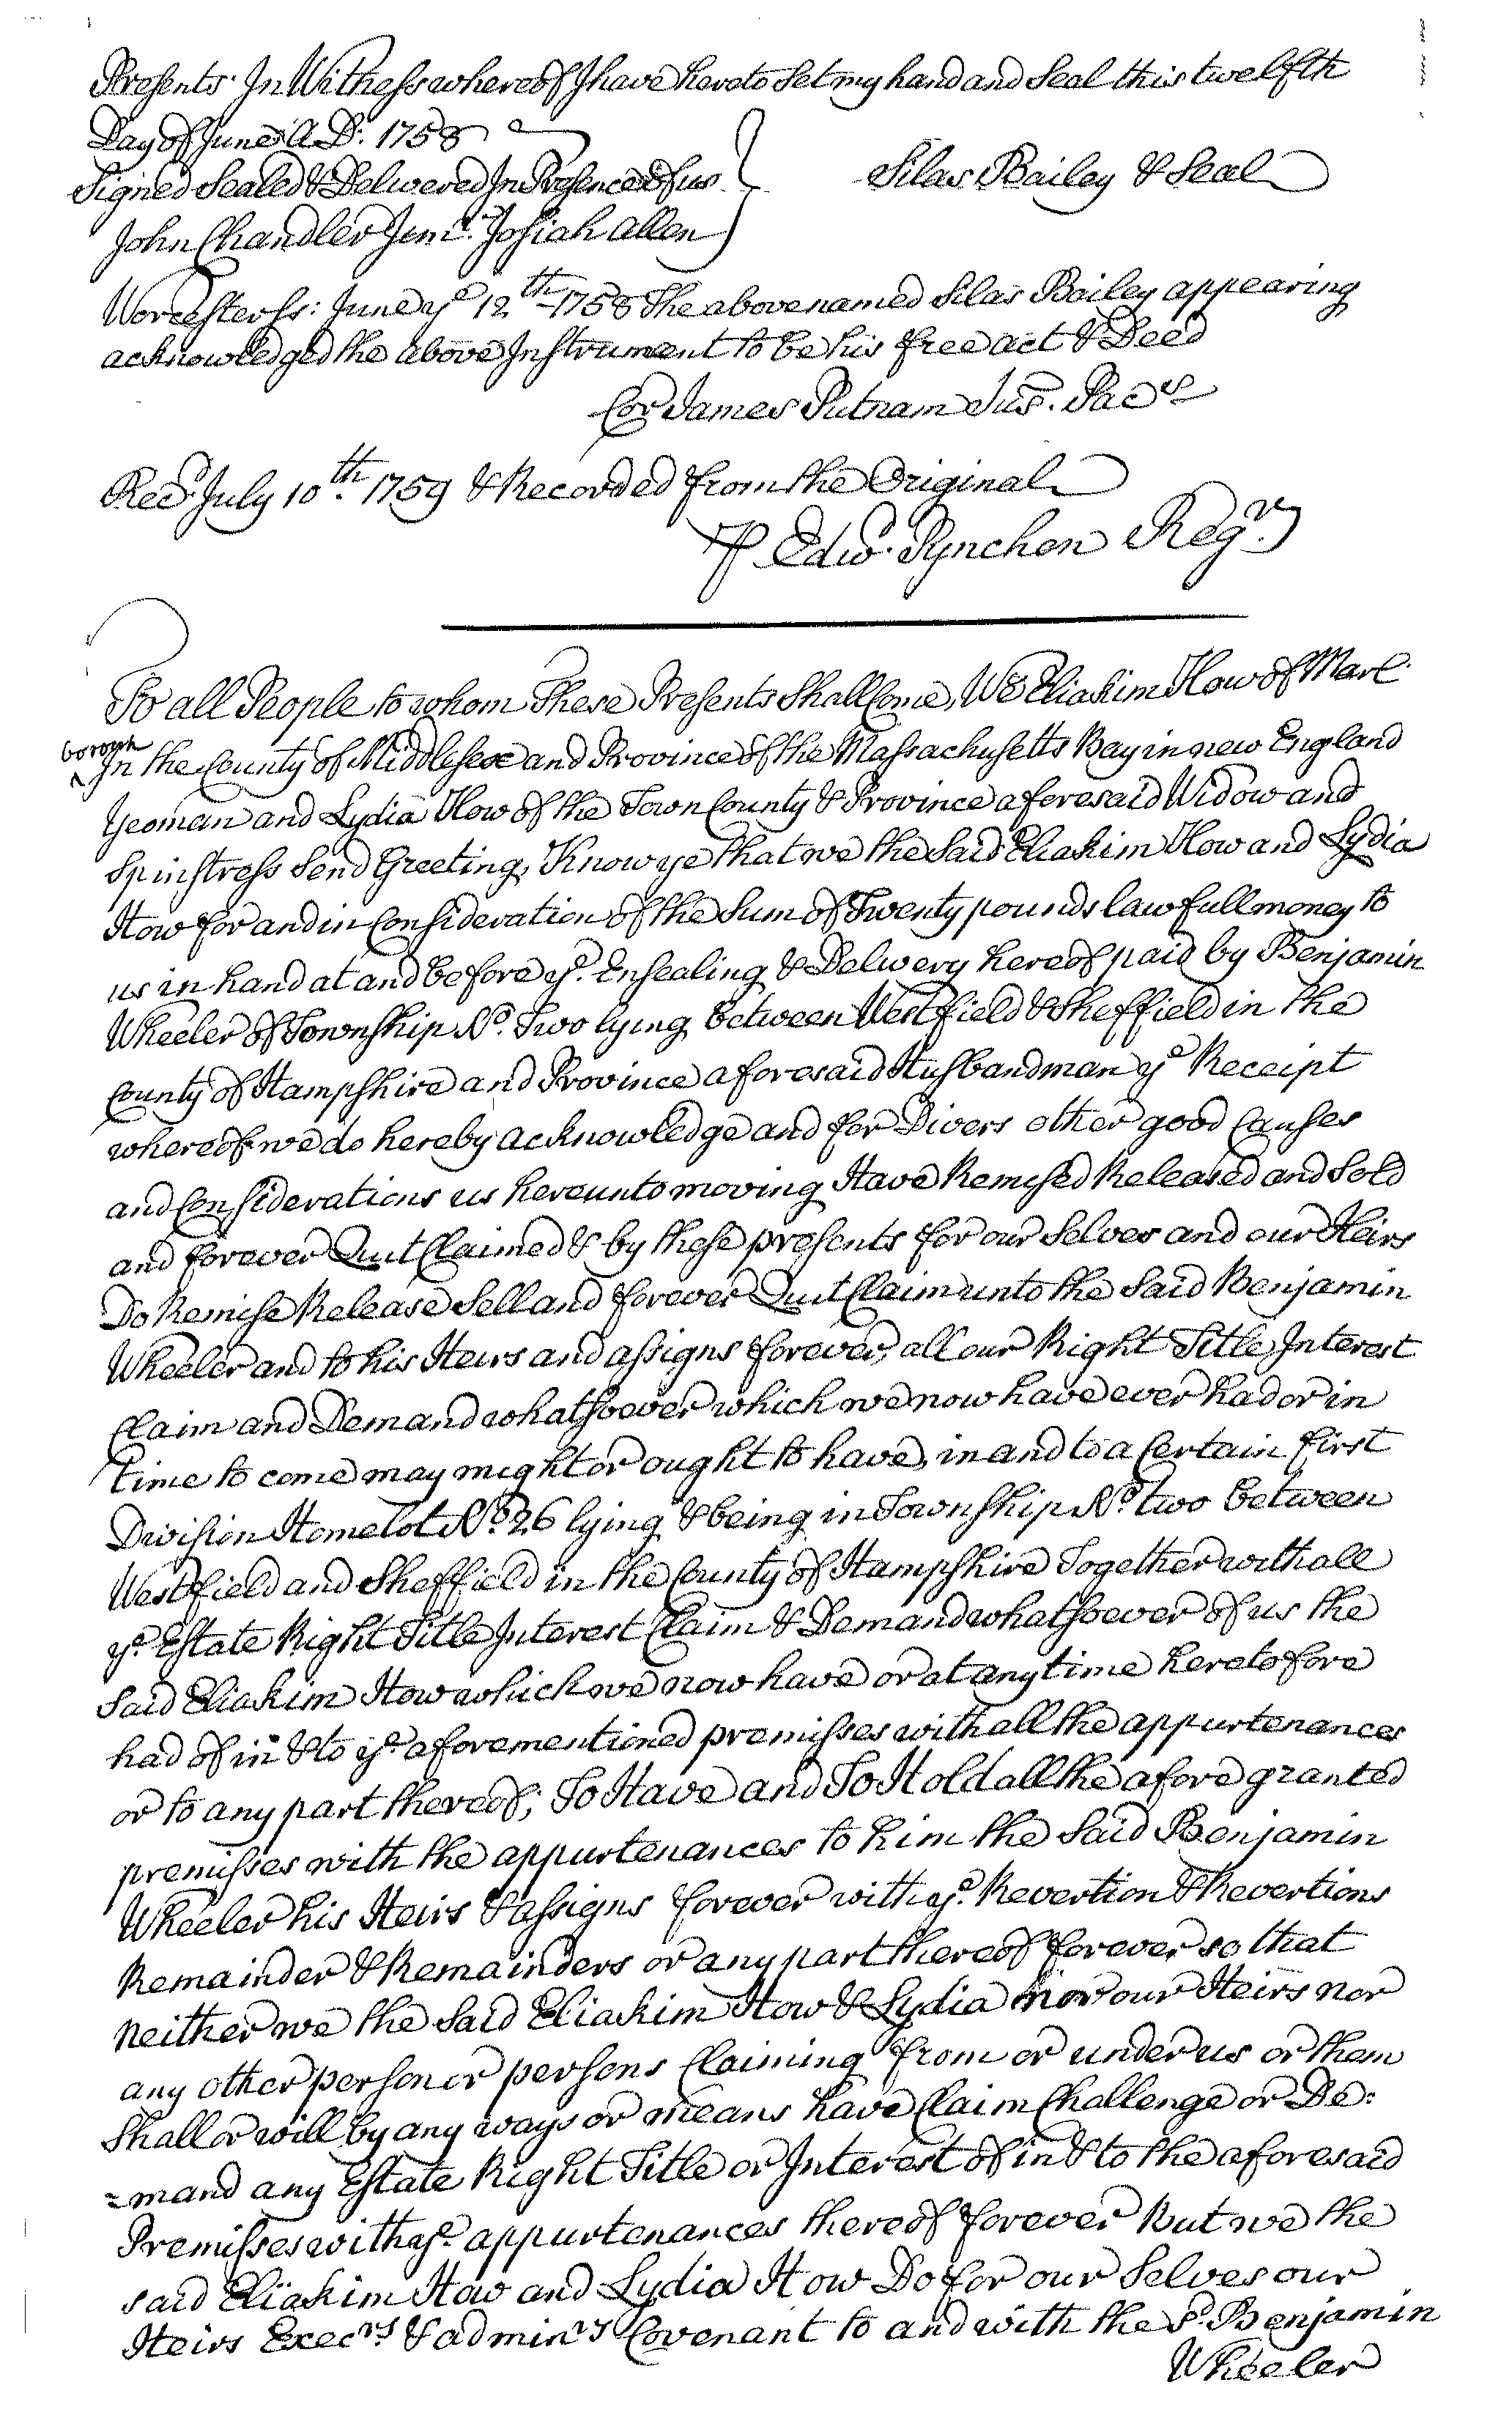 Presents. In Witness whereof I have hereto Set my hand and Seal this twelfth
Day of June A.D: 1758
Signed Sealed & Delivered In Presence of us
Silas Bailey & Seal
John Chandler Junr. Josiah Allen
Worcester ss: June ye 12th 1758 The above named Silas Bailey appearing
acknowledged the above Instrument to be his free act & Deed
Cor James Putnam Jus. Paces
Recd. July 10th. 1759 & Recorded from the Original
P Edwd. Pynchon Regr.
To all People to whom These Presents Shall Come, We Eliakim How of Marl
borough
In the County of Middlesex and Province of the Massachusetts Bay in new England
Yeoman and Lydia How of the Town County & Province aforesaid Widow and
Spinstress Send Greeting, Know ye that we the Said Eliakim How and Lydia
How for and in Consideration of the Sum of Twenty pounds lawfull money to
us in hand at and before ye. Ensealing & Delivery hereof paid by Benjamin
Wheeler of Township No. Two lying between Westfield & Sheffield in the
County of Hampshire and Province aforesaid Husbandman ye Receipt
whereof we do hereby acknowledge and for Divers other good Causes
and Considerations us hereunto moving Have Remised Released and Sold
and forever Quit Claimed & by these presents for our Selves and our Heirs
Do Remise Release Sell and forever Quit Claim unto the Said Benjamin
Wheeler and to his Heirs and assigns forever, all our Right Title Interest
Claim and Demand whatsoever which we now have ever had or in
time to come may might or ought to have, in and to a Certain first
Division Homelot No. 26 lying & being in Township No. two between
Westfield and Sheffield in the County of Hampshire Together with all
ye. Estate Right Title Interest Claim & Demand whatsoever of us the
Said Eliakim How which we now have or at any time heretofore
had of in & to ye. aforementioned premisses with all the appurtenances
or to any part thereof; To Have and To Hold all the afore granted
premisses with the appurtenances to him the Said Benjamin
Wheeler his Heirs & assigns forever with ye. Revertion & Revertions
Remainder & Remainders or any part thereof forever so that
neither we the Said Eliakim How & Lydia nor our Heirs nor
any other person or persons Claiming from or under us or them
Shall or will by any ways or means have Claim Challenge or De:
=mand any Estate Right Title or Interest of in & to the aforesaid
Premisses with ye. appurtenances thereof forever But we the
said Eliakim How and Lydia How Do for our Selves our
Heirs Execrs. & adminrs Covenant to and with the Sd. Benjamin
Wheeler